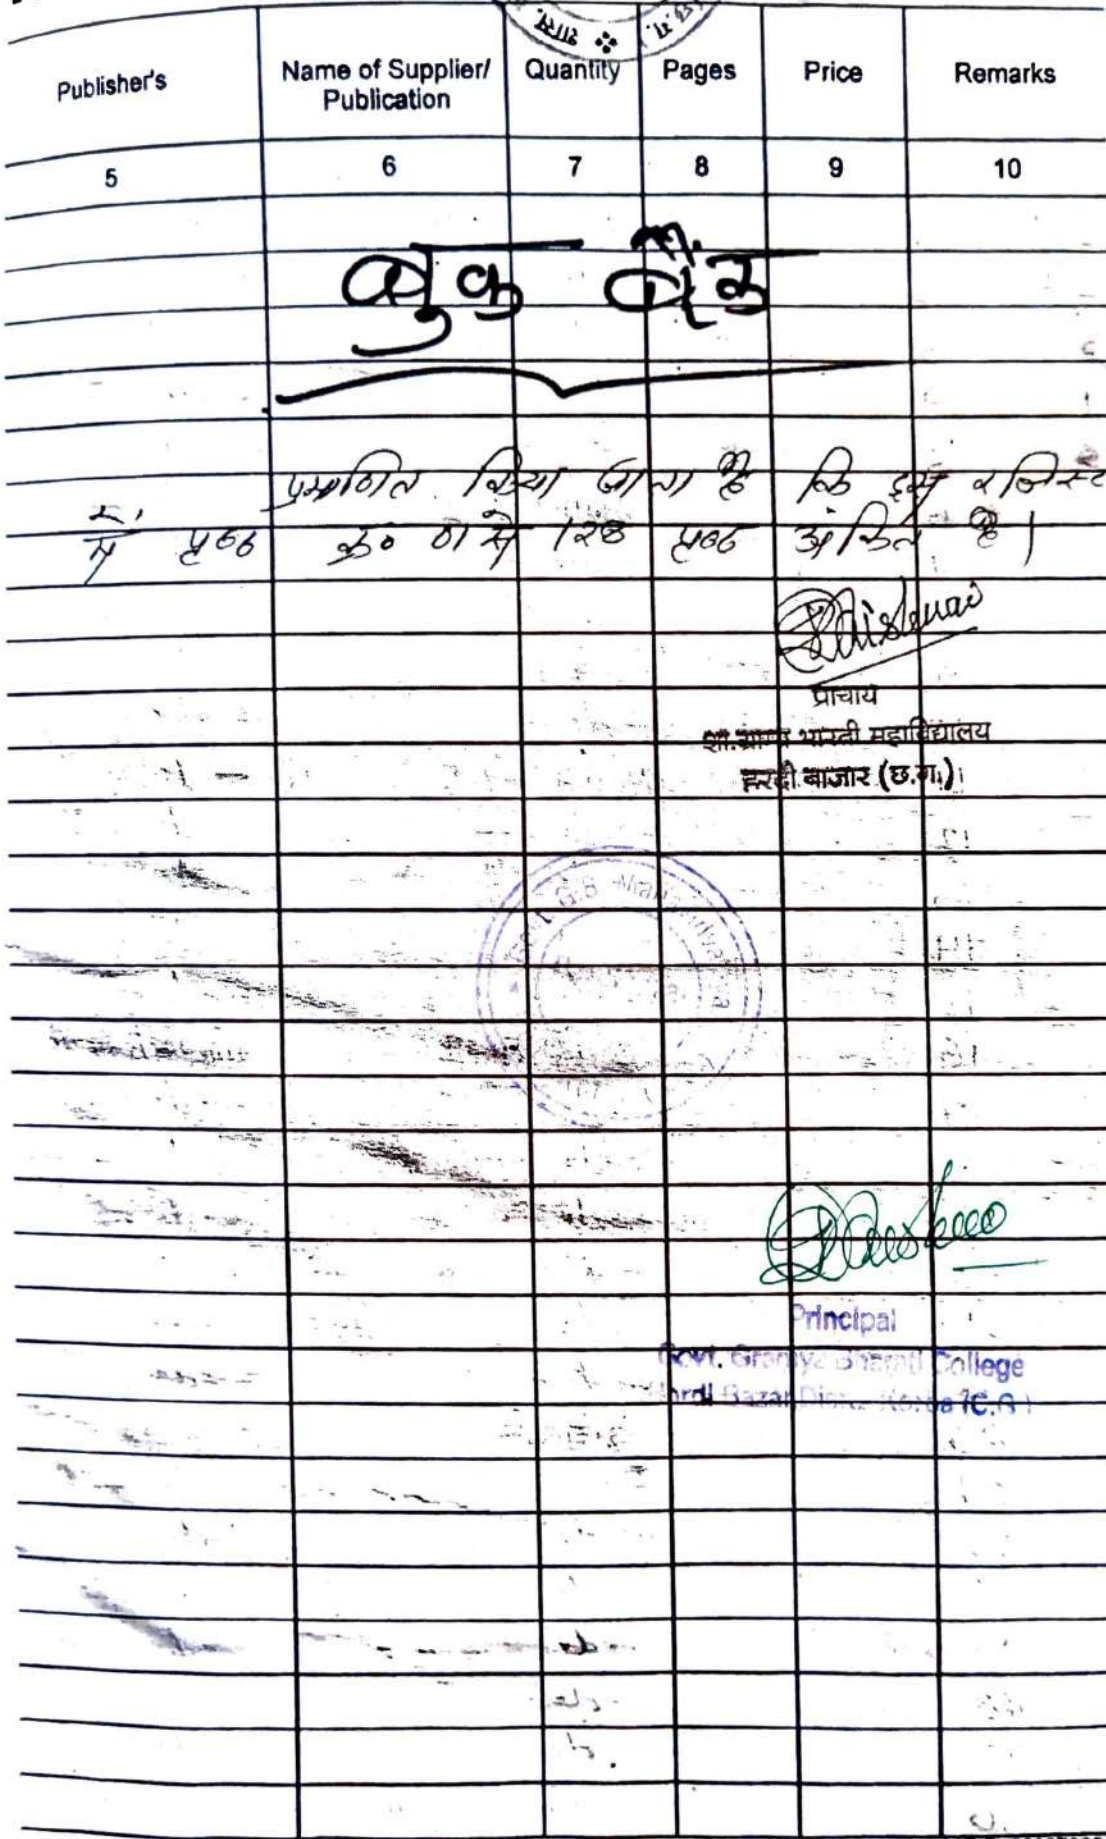 शास. ❖
Publisher's Name of Supplier/ Publication Quantity Pages Price Remarks
5 6 7 8 9 10
बुक बैंक
प्रमाणित किया जाता है कि इस रजिस्टर
में पृष्ठ क्र० 01 से 128 पृष्ठ अंकित है।
प्राचार्य
शा.ग्राम्य भारती महाविद्यालय
हरदी बाजार (छ.ग.)
Govt. G.B. Mahavidyalaya
Principal
Govt. Gramya Bharti College
Hardi Bazar Distt. Korba (C.G.)